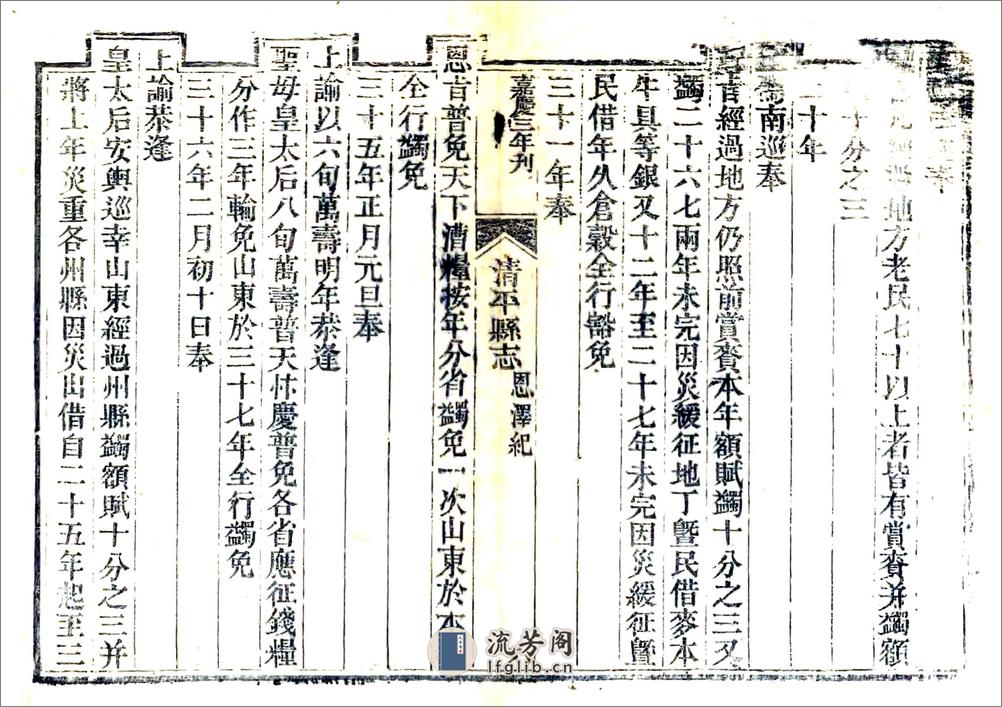 經過地方老民七十以上者皆有賞賚并蠲額
十分之三
二十年
南巡奉
旨經過地方仍照前賞賚本年額賦蠲十分之三又
蠲二十六七兩年未完因災緩征地丁曁民借麥本
牛具等銀又十二年至二十七年未完因災緩征曁
民借年久倉穀全行豁免
三十一年奉
嘉慶三年刋
清平縣志
恩澤紀
恩旨普免天下漕糧按年分省蠲免一次山東於本
全行蠲免
三十五年正月元旦奉
上諭以六旬萬壽明年恭逢
聖母皇太后八旬萬壽普天忭慶普免各省應征錢糧
分作三年輪免山東於三十七年全行蠲免
三十六年二月初十日奉
上諭恭逢
皇太后安輿巡幸山東經過州縣蠲額賦十分之三并
將上年災重各州縣因災出借自二十五年起至三
流芳阁
lfglib.cn